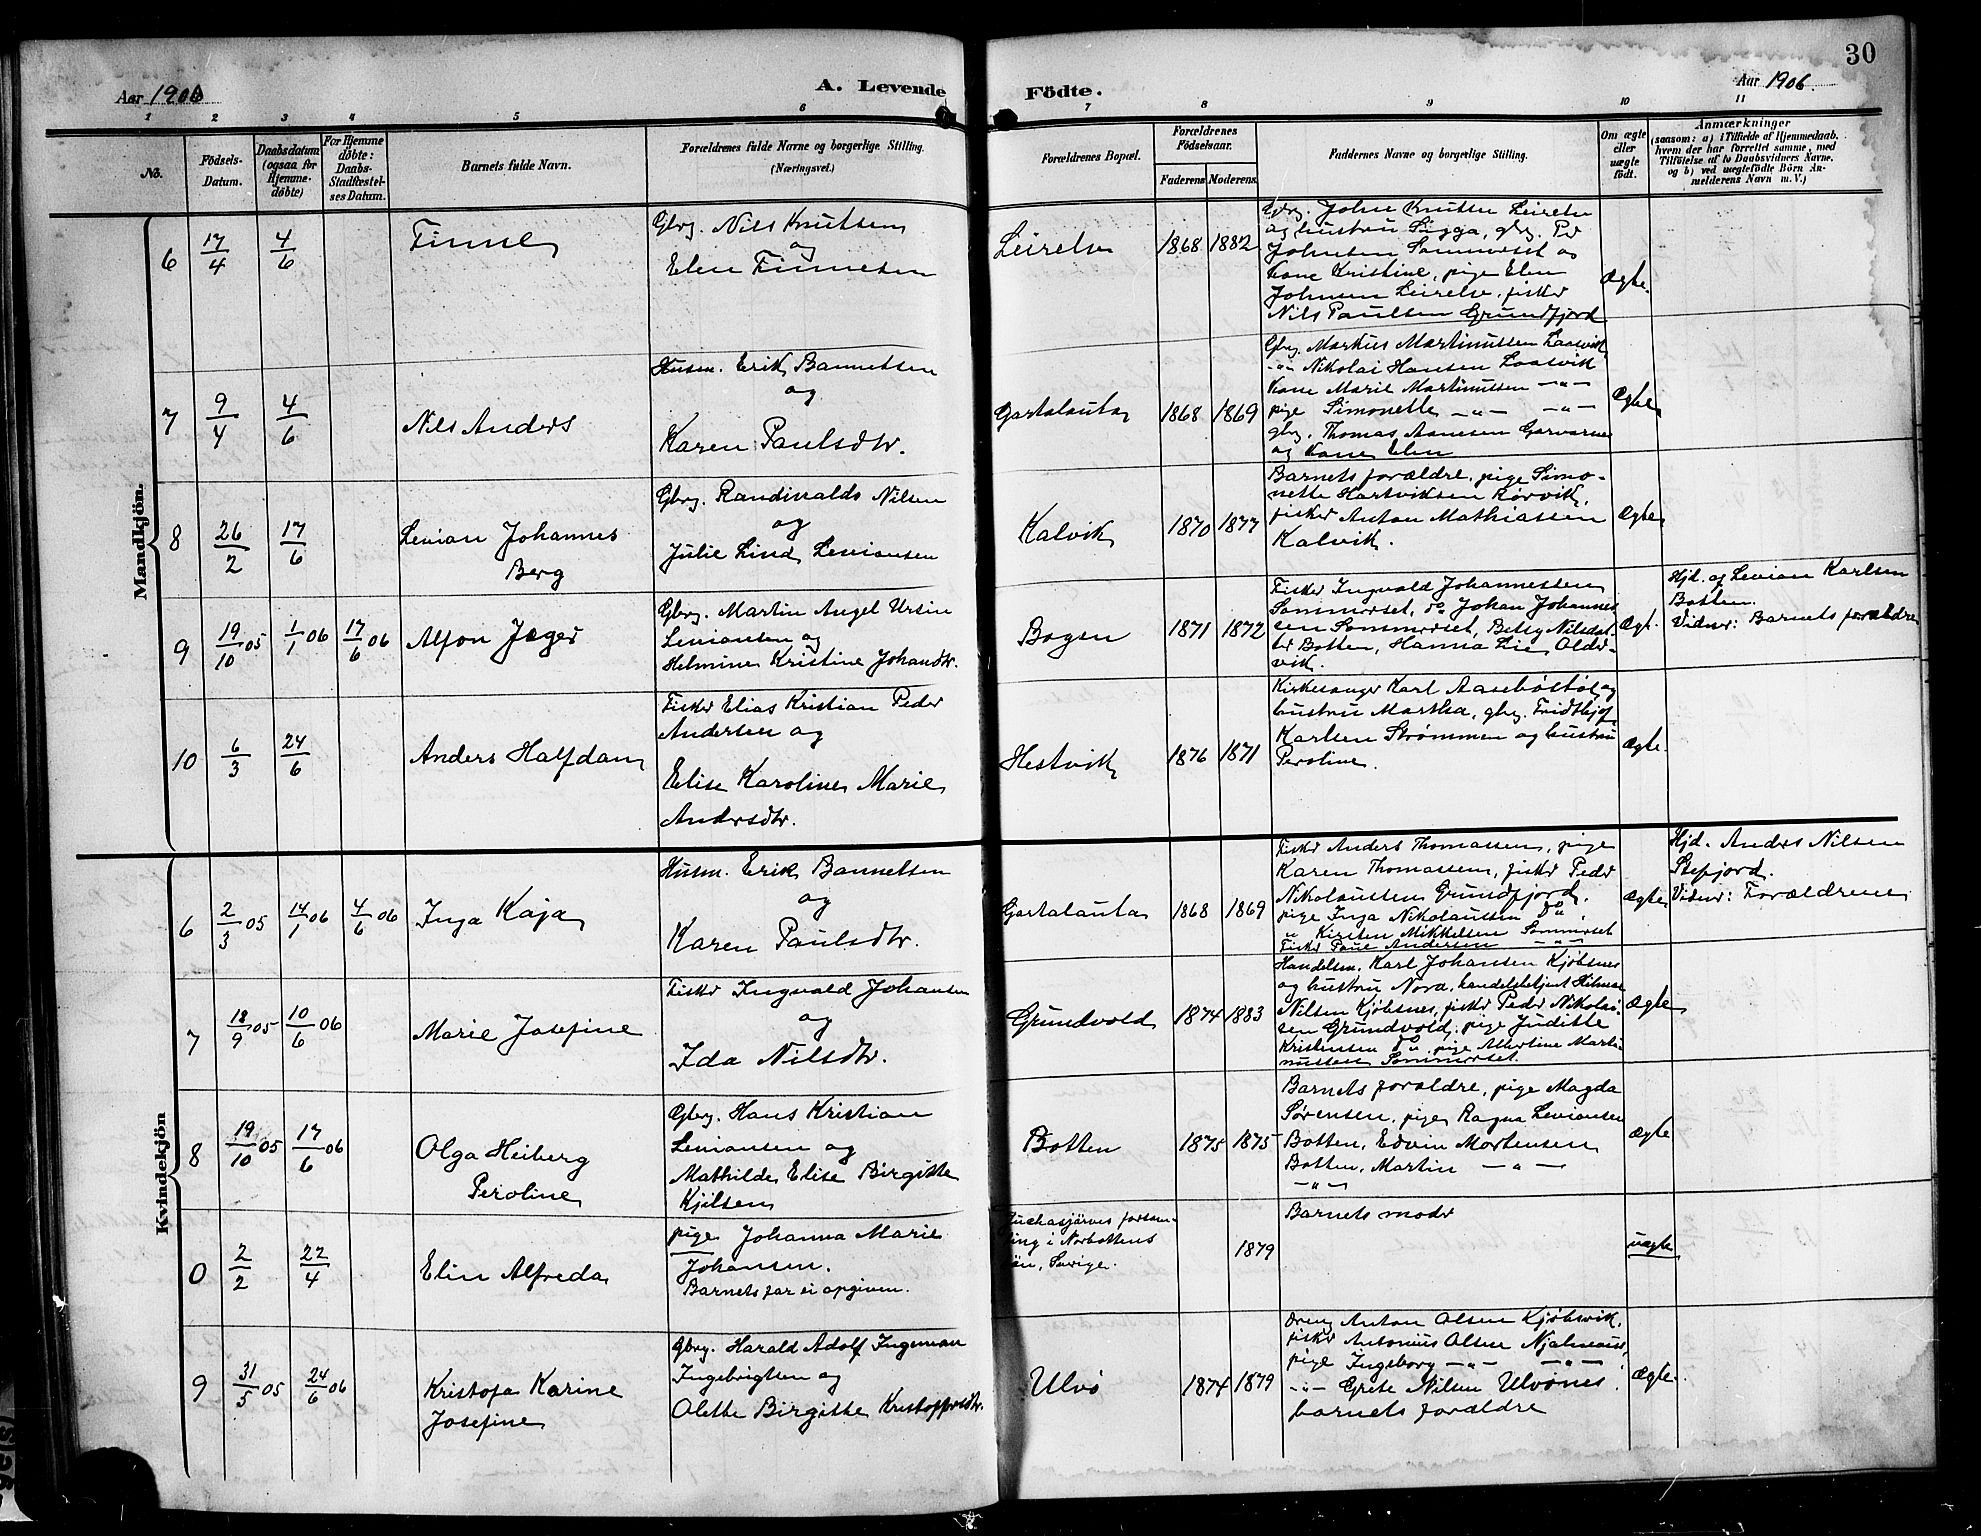 30
Aar 1906
A. Levende Födte.
Aar 1906.
1 2 3 4 5 6 7 8 9 10 11
No.
Födsels-
Datum.
Daabsdatum
(ogsaa for
Hjemme-
döbte)
For Hjemme
döbte:
Daabs-
Stadfæstel-
ses Datum.
Barnets fulde Navn.
Forældrenes fulde Navne og borgerlige Stilling.
(Næringsvei.)
Forældrenes Bopæl.
Forældrenes
Födselsaar.
Faderens Moderens.
Faddernes Navne og borgerlige Stilling.
Om ægte
eller
uægte
födt.
Anmærkninger
(saasom: a) i Tilfælde af Hjemmedaab,
hvem der har forrettet samme, med
Tilföielse af to Daabsvidners Navne,
og b) ved uægtefödte Börn An-
melderens Navn m. V.)
Mandkjön.
6 17/4 4/6 Finne
Gbrg. Nils Knutsen
og
Elen Finnesen
Leirelv 1868 1882
Gbrg. John Knutsen Leirelv
og hustru Sigga, gbrg. Per
Johnsen Sommerset og
kone Kristine, pige Elen
Johnsen Leirelv, fisker
Nils Paulsen Grundfjord
Ægte.
7 9/4 4/6 Nils Anders
Husm. Erik Bannetsen
og
Karen Paulsdtr.
Gastalauta 1868 1869
Gbrg. Markus Martinussen Laasvik
-"- Nikolai Hansen Laasvik
Kone Marie Martinussen -"-
pige Simonette -"- -"-
gbrg. Thomas Aanesen Garvarnes
og kone Elen
Ægte
8 26/2 17/6 Levian Johannes
Berg
Gbrg. Randinalds Nilsen
og
Julie Lind Leviansen
Kalvik 1870 1877
Barnets forældre, pige Simo-
nette Hartviksen Rørvik,
fisker Anton Mathiassen
Kalvik.
Ægte
9 19/10 05 1/1 06 17/6 06 Alfon Jæger
Gbrg. Martin Angel Ursin
Leviansen og
Helmine Kristine Johandtr.
Bogen 1871 1872
Fisker Ingvald Johannessen
Sommerset, do Johan Johannes
sen Sommerset, Betsy Nilsdat-
ter Botten, Hanna Lie Older-
vik.
Ægt.
Hjd. af Levian Karlsen
Botten.
Vidner: Barnets forældre
10 6/3 24/6 Anders Halfdan
Fisker Elias Kristian Peder
Andersen og
Elise Karoline Marie
Andersdtr.
Hestvik 1876 1871
Kirkesanger Karl Aasebøstøl og
hustru Martha, gbrg. Fridthjof
Karlsen Strømmen og hustru
Peroline.
Ægte.
Kvindekjön
6 2/3 05 14/1 06 4/6 06 Inga Kaja
Husm. Erik Bannetsen
og
Karen Paulsdtr.
Gastalauta 1868 1869
Fisker Anders Thomassen, pige
Karen Thomassen, fisker Peder
Nikolaussen Grundfjord,
pige Inga Nikolaussen do,
" Kirsten Mikkelsen Sommerset
Fisker Paul Andersen -"-
Ægte
Hjd. Anders Nilsen
Stefjord.
Vidner: Forældrene
7 18/9 05 10/6 06 Marie Josefine
Fisker Ingvald Johansen
og
Ida Nilsdtr.
Grundvold 1874 1883
Handelsm. Karl Johansen Kjøbsnes
og hustru Nora, handelsbetjent Hilmar
Nilsen Kjøbsnes, fisker Peder Nikolai-
sen Grundvold, pige Juditte
Kristensen do, pige Albertine Marti-
nussen Sommerset.
Ægte
8 19/10 05 17/6 06 Olga Heiberg
Peroline
Gbrg. Hans Kristian
Leviansen og
Mathilde Elise Birgitte
Kjilsen
Botten 1875 1875
Barnets forældre, pige Magda
Sørensen, pige Ragna Leviansen
Botten, Edvin Mortensen
Botten, Martin -"-
-"-
Ægte
0 2/2 22/4 Elin Alfreda
pige Johanna Marie
Johansen.
Barnets far ei opgiven.
Juckasjärvis forsam-
ling i Norbottens
län, Sverige.
1879
Barnets moder
uægte
9 31/5 05 24/6 06 Kristofa Karine
Josefine
Gbrg. Harald Adolf Ingeman
Ingebrigtsen og
Olette Birgitte Kristoffersdtr.
Ulvø 1874 1879
Dreng Anton Olsen Kjøbsvik,
fisker Antonius Olsen Njalneus,
pige Ingeborg -"- -"-,
-"- Grete Nilsen Ulvønes,
barnets forældre
Ægte.